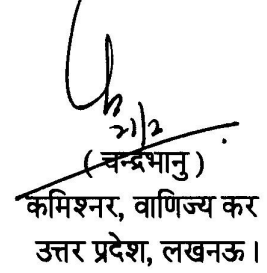 21/2
( चन्द्रभानु )
कमिश्नर, वाणिज्य कर
उत्तर प्रदेश, लखनऊ।